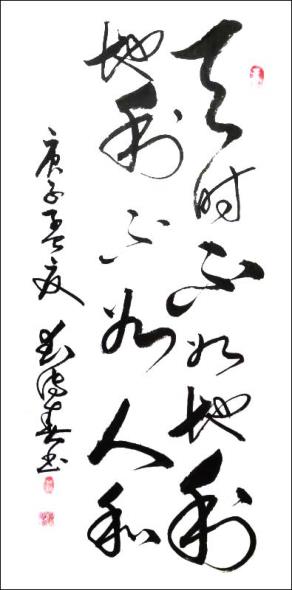 天时不如地利
地利不如人和
庚子夏 刘春书